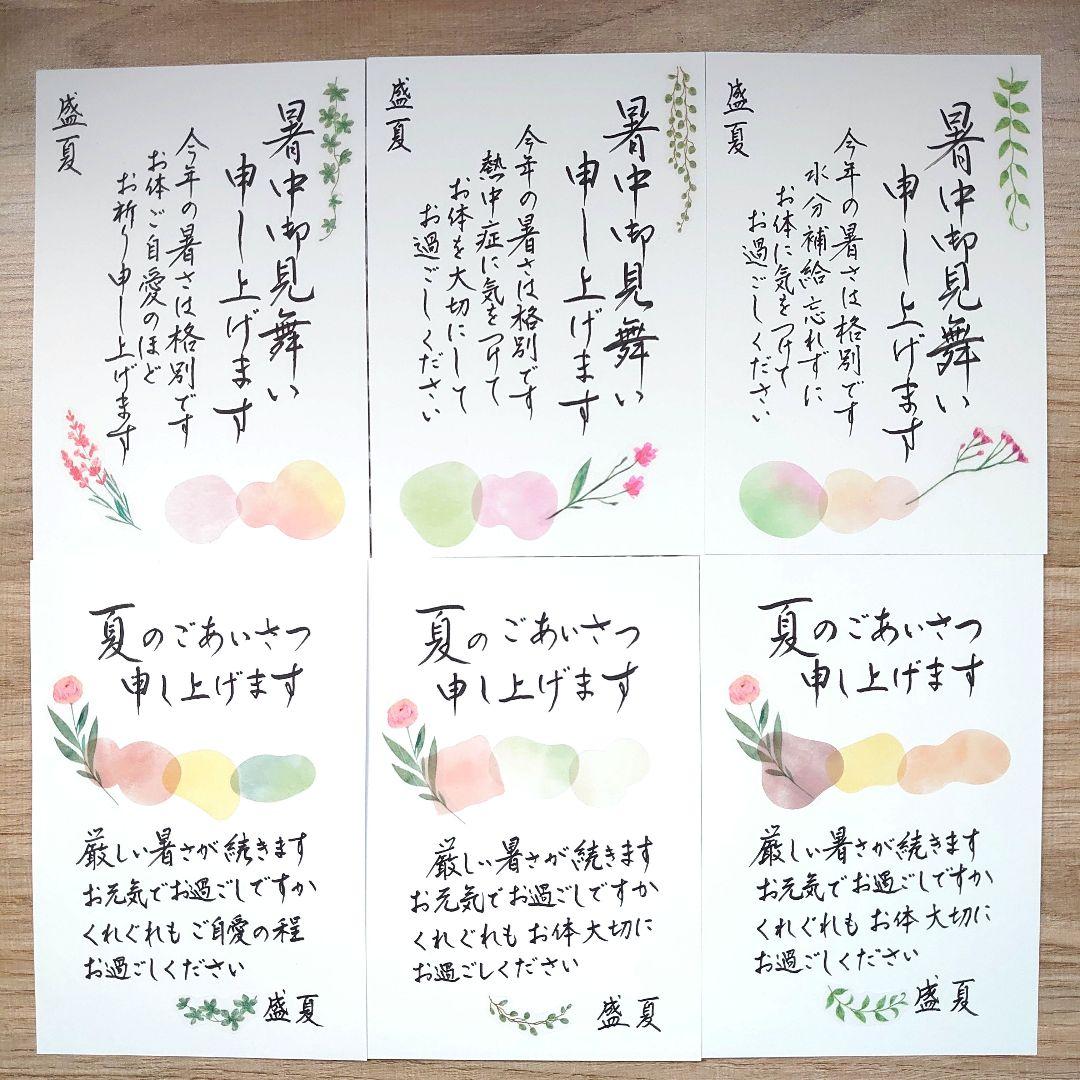 暑中御見舞い
申し上げます
今年の暑さは格別です
お体ご自愛のほど
お祈り申し上げます
盛夏
暑中御見舞い
申し上げます
今年の暑さは格別です
熱中症に気をつけて
お体を大切にして
お過ごしください
盛夏
暑中御見舞い
申し上げます
今年の暑さは格別です
水分補給忘れずに
お体に気をつけて
お過ごしください
盛夏
夏のごあいさつ
申し上げます
厳しい暑さが続きます
お元気でお過ごしですか
くれぐれもご自愛の程
お過ごしください
盛夏
夏のごあいさつ
申し上げます
厳しい暑さが続きます
お元気でお過ごしですか
くれぐれもお体大切に
お過ごしください
盛夏
夏のごあいさつ
申し上げます
厳しい暑さが続きます
お元気でお過ごしですか
くれぐれもお体大切に
お過ごしください
盛夏